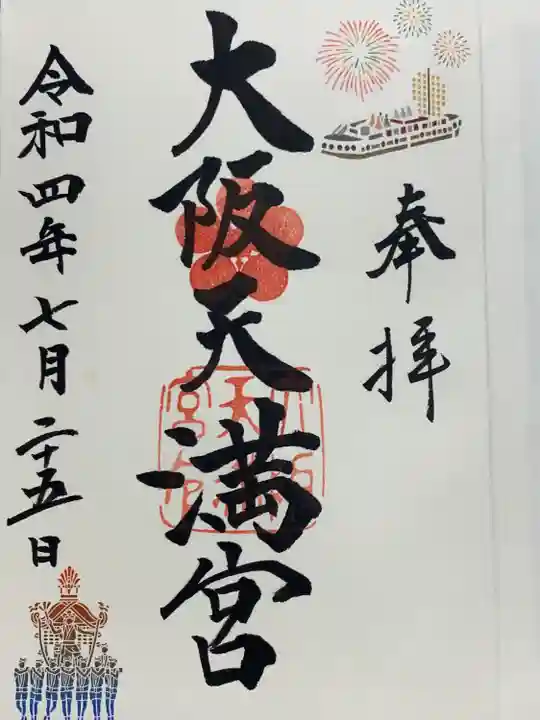 奉拝
大阪天満宮
令和四年七月二十五日